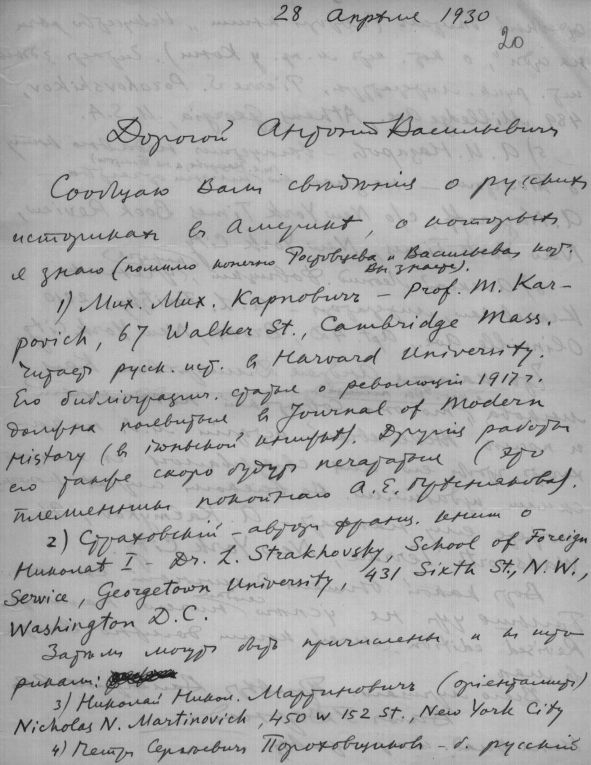 28 Апрѣля 1930
20
Дорогой Антоній Васильевичъ
Сообщаю Вамъ свѣдѣнія о русскихъ
историкахъ въ Америкѣ, о которыхъ
я знаю (помимо конечно Ростовцева и Васильева, кот.
Вы знаете).
1) Мих. Мих. Карповичъ – Prof. M. Kar-
povich, 67 Walker St., Cambridge Mass.
Читаетъ русск. ист. въ Harvard University.
Его библіографич. статья о революціи 1917 г.
должна появиться въ Journal of Modern
History (въ іюньской книжкѣ). Другія работы
его также скоро будутъ печататься (это
племянникъ покойнаго А. Е. Прѣснякова).
2) Страховскій – авторъ франц. книги о
Николаѣ I – Dr. L. Strakhovsky, School of Foreign
Service, Georgetown University, 431 Sixth St., N.W.,
Washington D.C.
Затѣмъ могутъ быть причислены и къ исто-
рикамъ:
3) Николай Никол. Мартиновичъ (оріенталистъ)
Nicholas N. Martinovich, 450 W 152 St., New York City
4) Петръ Сергѣевичъ Пороховщиковъ – б. русскій